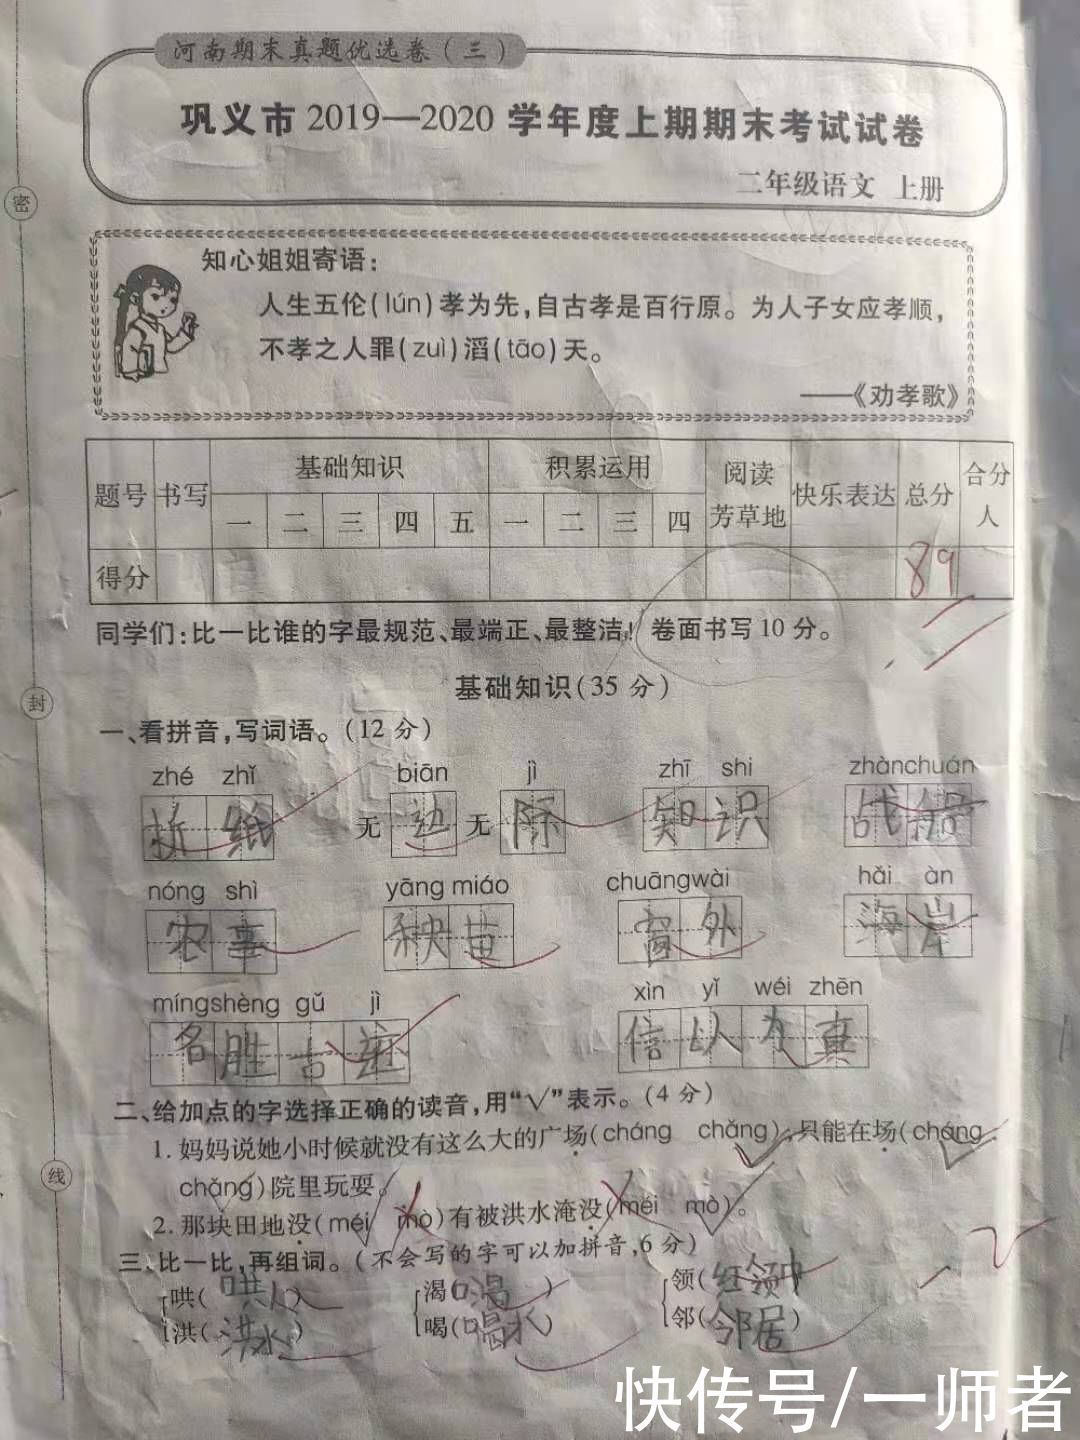 河南期末真题优选卷(三)
巩义市2019—2020学年度上期期末考试试卷
二年级语文 上册
密
知心姐姐寄语:
人生五伦(lún)孝为先,自古孝是百行原。为人子女应孝顺,
不孝之人罪(zuì)滔(tāo)天。
——《劝孝歌》
题号 书写 基础知识 积累运用 阅读芳草地 快乐表达 总分 合分人
一 二 三 四 五 一 二 三 四
得分 89
同学们:比一比谁的字最规范、最端正、最整洁! 卷面书写10分。
基础知识(35分)
封
一、看拼音,写词语。(12分)
zhé zhǐ biān jì zhī shi zhànchuán
折纸 无边无际 知识 战船
nóng shì yāng miáo chuāngwài hǎi àn
农事 秧苗 窗外 海岸
míngshèng gǔ jì xìn yǐ wéi zhēn
名胜古迹 信以为真
二、给加点的字选择正确的读音,用“√”表示。(4分)
1. 妈妈说她小时候就没有这么大的广场(cháng chǎng),只能在场(cháng
线
chǎng)院里玩耍。
2. 那块田地没(méi mò)有被洪水淹没(méi mò)。
三、比一比,再组词。(不会写的字可以加拼音,6分)
哄(哄人) 渴(口渴) 领(红领巾)
洪(洪水) 喝(喝水) 邻(邻居)
快传号/一师者